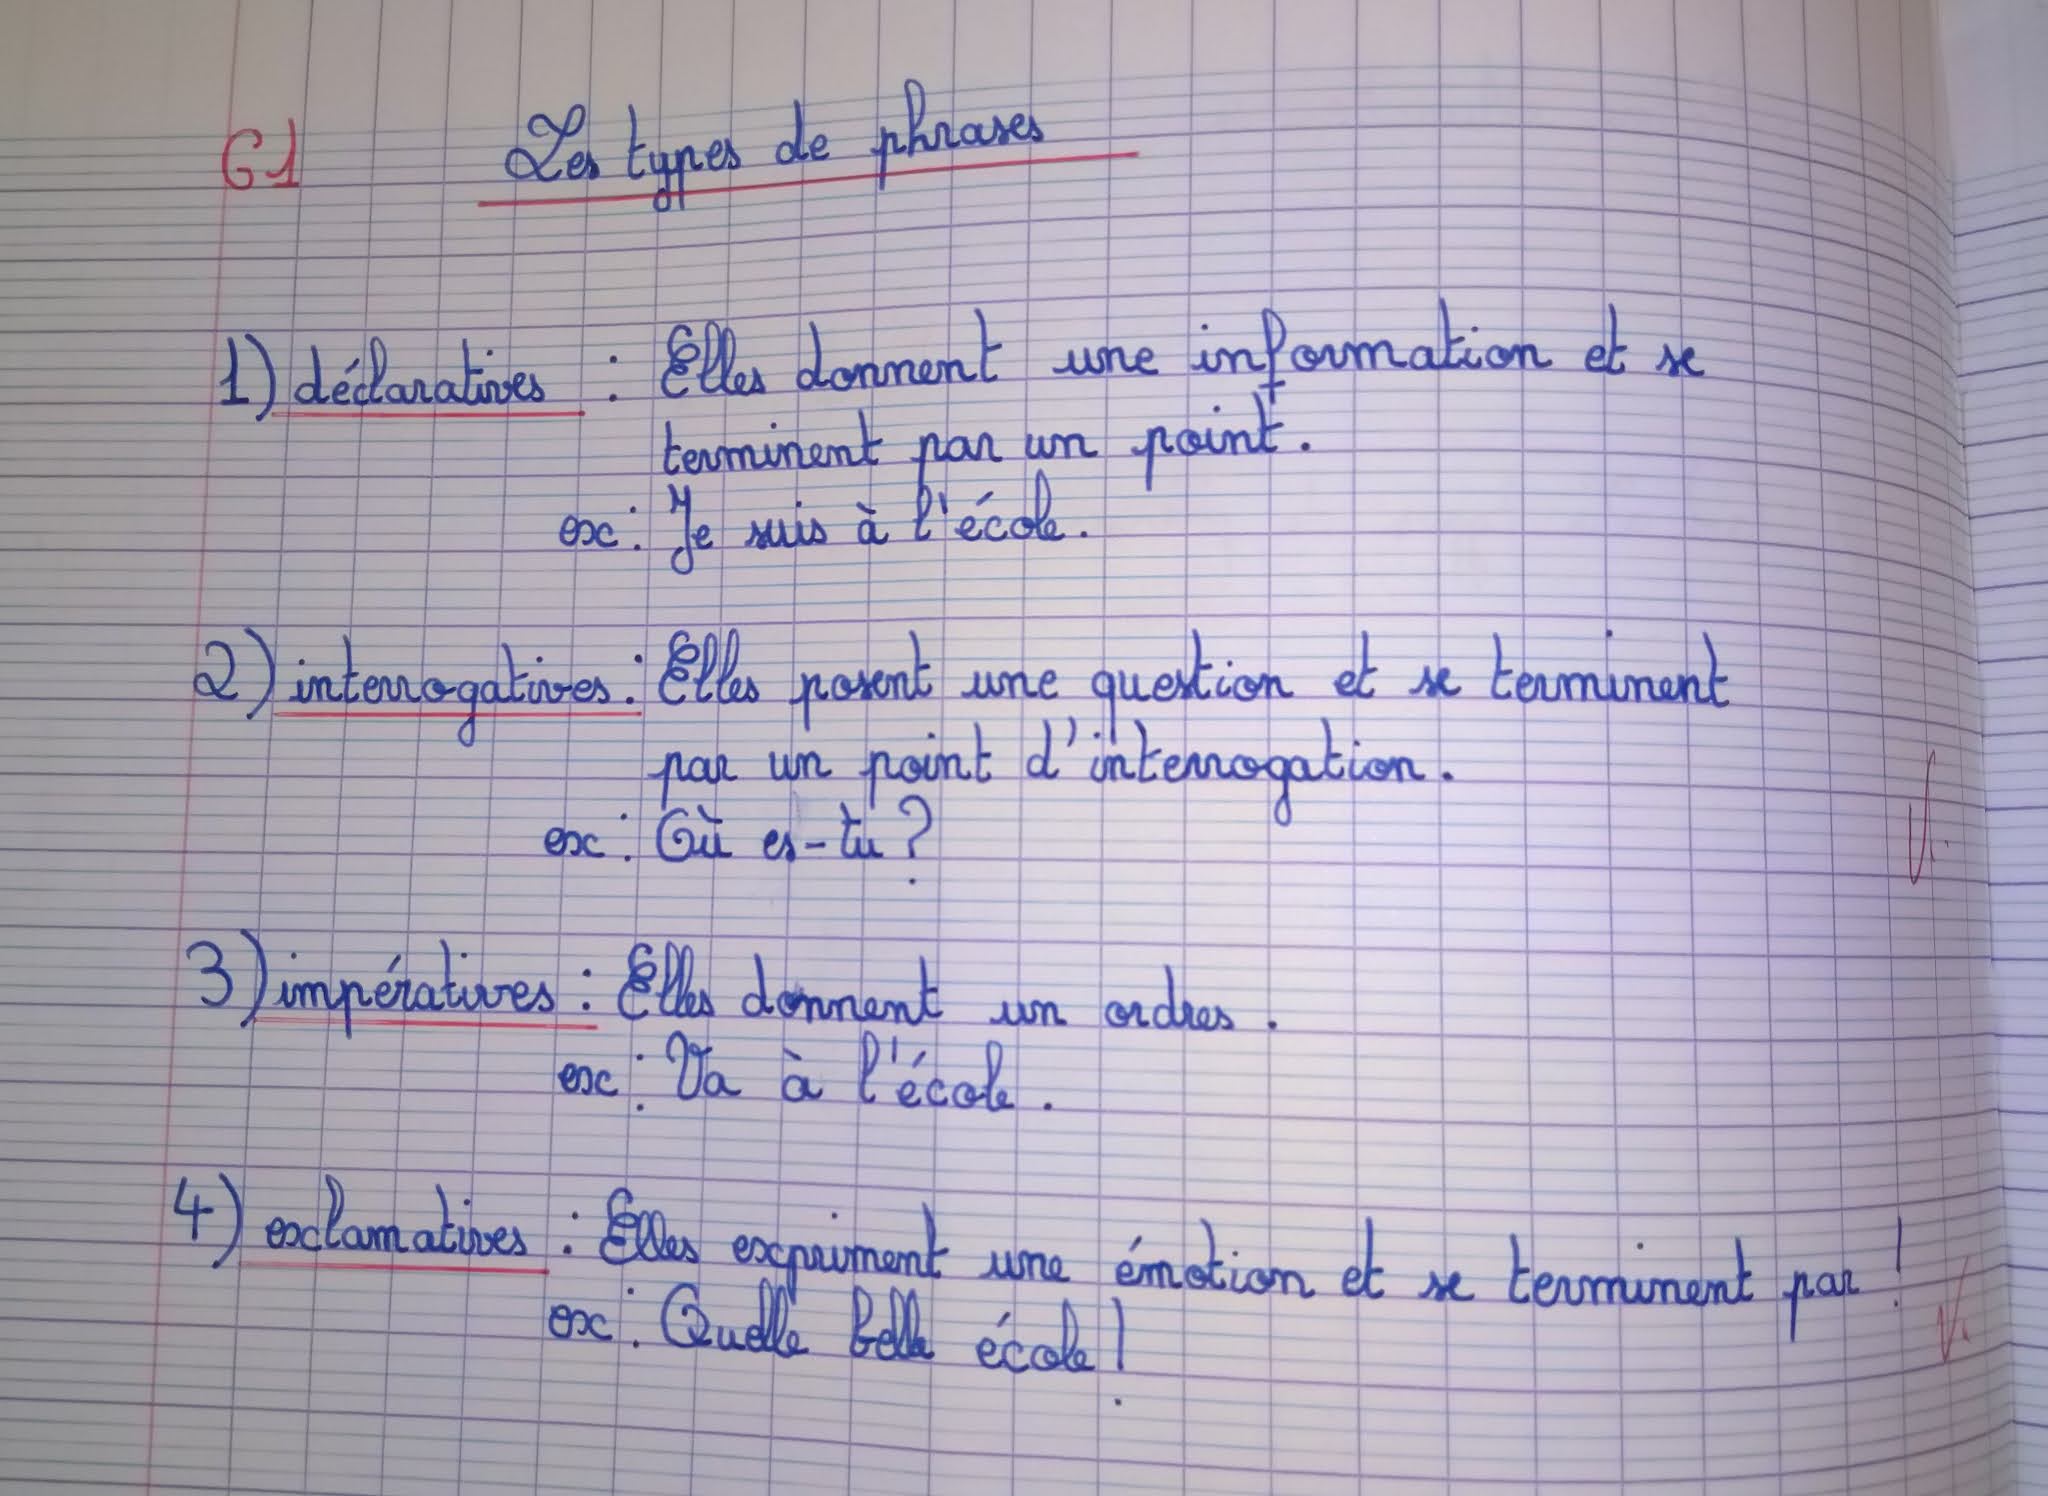 G1 Les types de phrases
1) déclaratives : Elles donnent une information et se
terminent par un point.
ex : Je suis à l'école.
2) interrogatives : Elles posent une question et se terminent
par un point d'interrogation.
ex : Où es-tu ?
3) impératives : Elles donnent un ordres.
ex : Va à l'école.
4) exclamatives : Elles expriment une émotion et se terminent par !
ex : Quelle belle école !